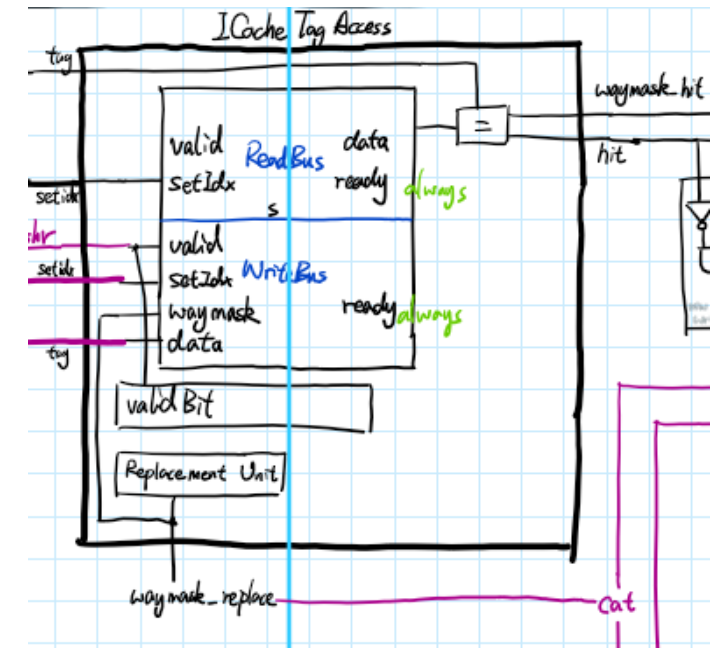 ICache Tag Access
tag
waymask_hit
=
hit
valid
ReadBus
data
setIdx
ready
always
setidx
s
valid
setidx
setIdx
WriteBus
waymask
ready
always
data
tag
validBit
Replacement Unit
waymask_replace
cat